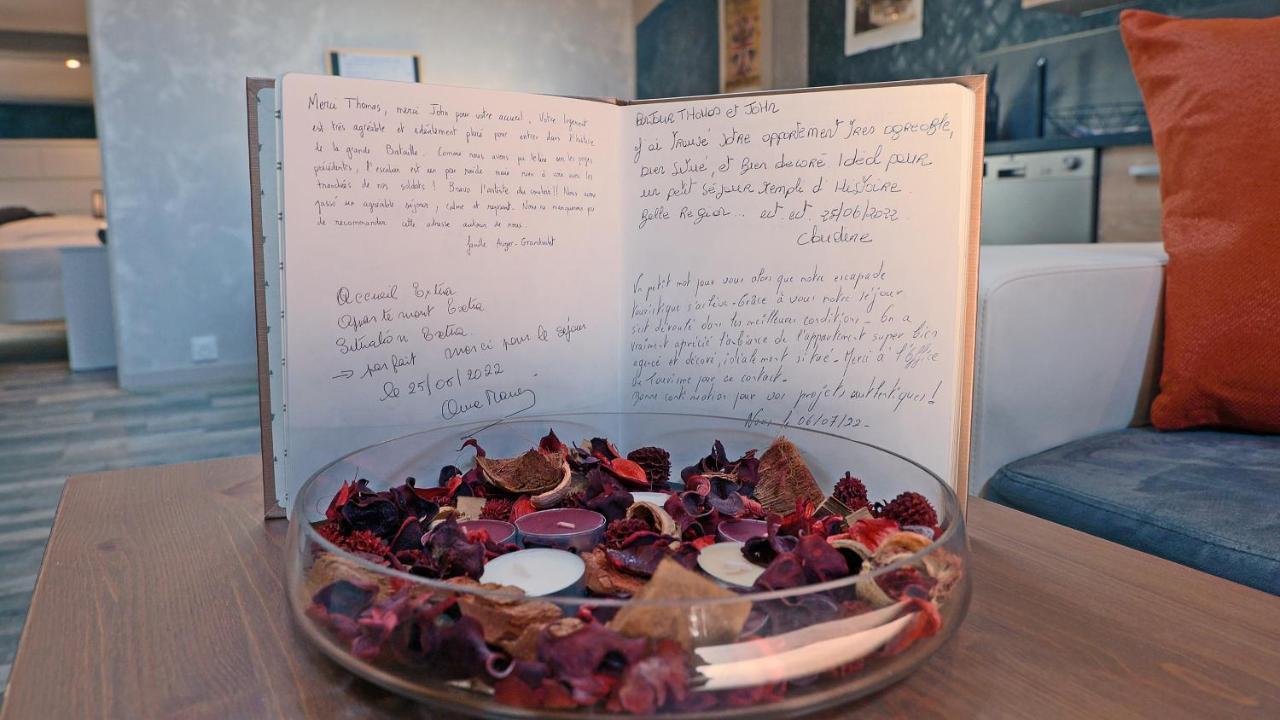 Merci Thomas, merci John pour votre accueil. Votre logement
est très agréable et idéalement placé pour entrer dans l'histoire
de la grande Bataille. Comme nous avons pu le lire sur les pages
précédentes, l'escalier est un peu raide mais rien à voir avec les
tranchées de nos soldats ! Bravo l'artiste du couloir !! Nous avons
passé un agréable séjour, calme et reposant. Nous ne manquerons pas
de recommander cette adresse autour de nous.
famille Auger-
Accueil Extra
Appartement Extra
Situation Extra
→ parfait merci pour le séjour
le 25/06/2022
BONJOUR THOMAS ET JOHN
J'ai trouvé votre appartement très agréable,
bien situé, et bien décoré. Idéal pour
un petit séjour rempli d'Histoire.
Belle Region... est est. 25/06/2022.
Claudine
Un petit mot pour vous alors que notre escapade
touristique s'achève. Grâce à vous notre séjour
s'est déroulé dans les meilleures conditions. On a
vraiment apprécié l'ambiance de l'appartement super bien
agencé et décoré, idéalement situé. Merci à l'Office
de Tourisme pour ce contact.
Bonne continuation pour vos projets authentiques !
le 06/07/22.